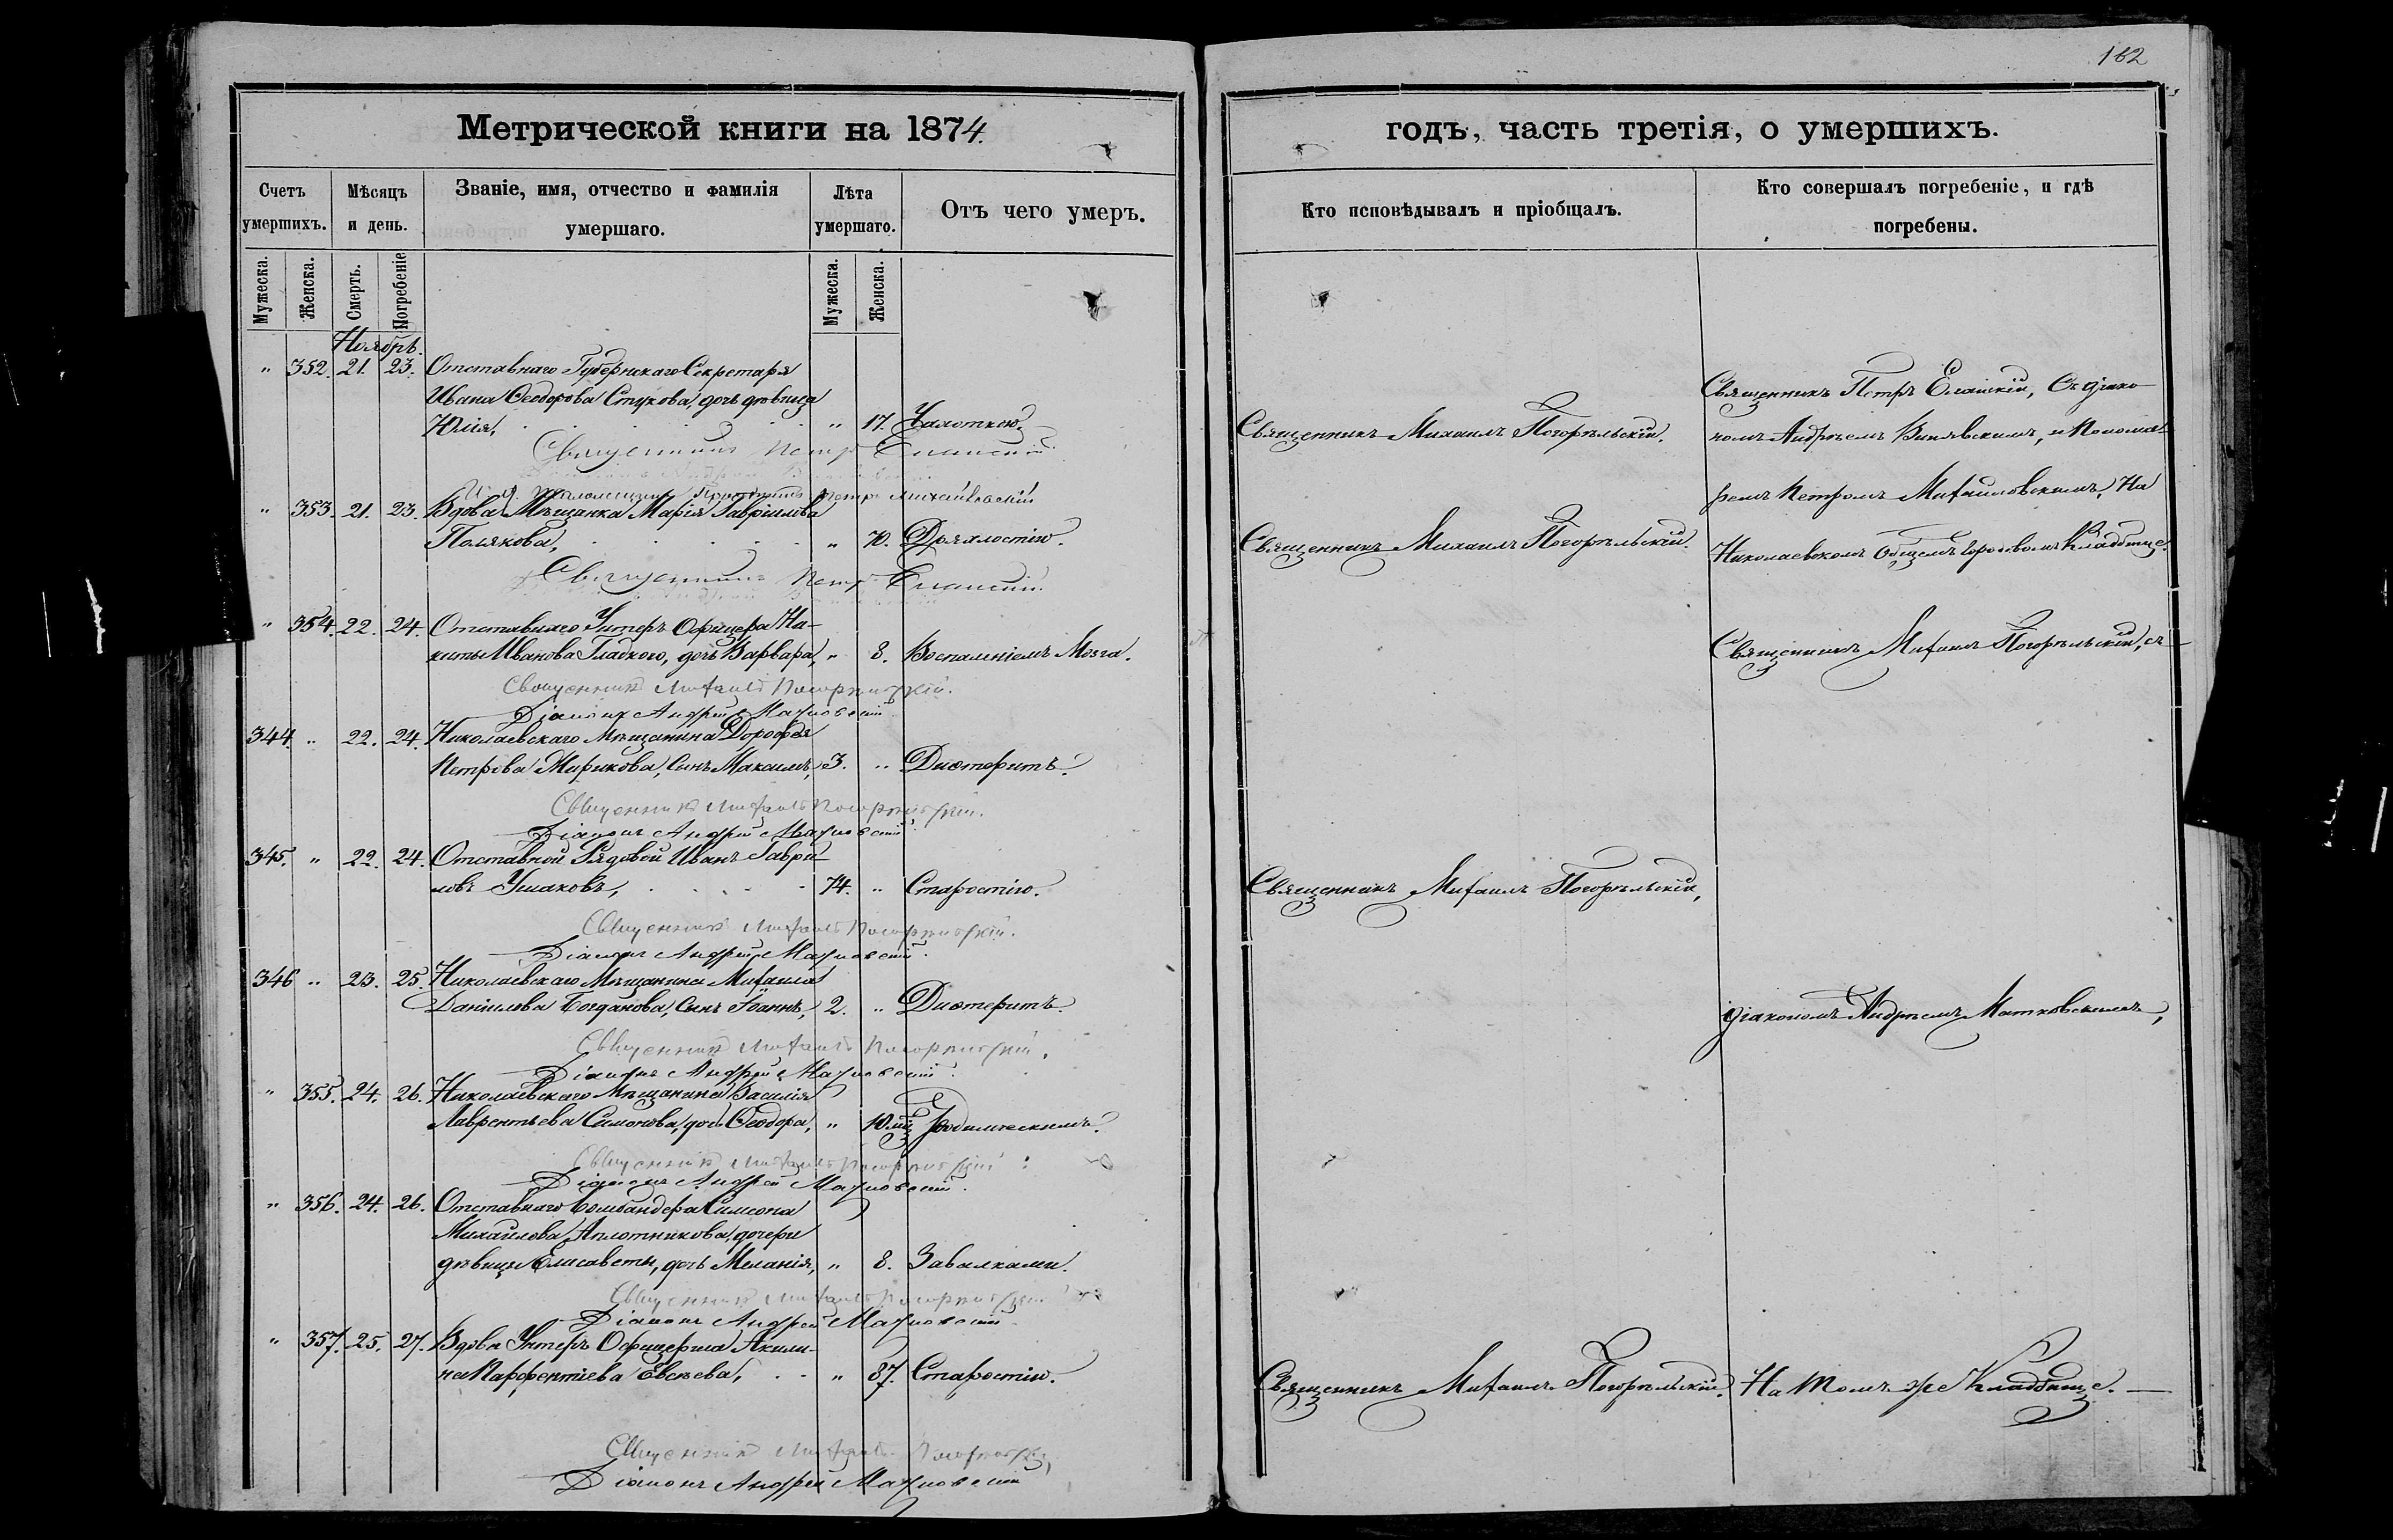 162
Метрической книги на 1874.
годъ, часть третія, о умершихъ.
Счетъ умершихъ.
Мѣсяцъ и день.
Званіе, имя, отчество и фамилія умершаго.
Лѣта умершаго.
Отъ чего умеръ.
Кто исповѣдывалъ и пріобщалъ.
Кто совершалъ погребеніе, и гдѣ погребены.
Мужеска.
Женска.
Смерть.
Погребеніе
Мужеска.
Женска.
Ноябрь.
" 352. 21. 23. Отставнаго Губернскаго Секретаря
Ивана Ѳеодорова Стукова, дочь дѣвица
Юлія, " 17. Чахоткою.
Священникъ Михаилъ Погорѣльскій.
Священникъ Петръ Еланскій
" 353. 21. 23. Вдова Мѣщанка Марія Гавріилова
Полякова, " 70. Дряхлостію.
Священникъ Михаилъ Погорѣльскій.
Священникъ Петръ Еланскій
" 354. 22. 24. Отставнаго Унтеръ Офицера Ни-
киты Иванова Гладкого, дочь Варвара, " 8. Воспаленіемъ Мозга.
Священникъ Михаилъ Погорѣльскій.
Діаконъ Андрей Матковскій
344. " 22. 24. Николаевскаго Мѣщанина Дорофея
Петрова Жирикова, сынъ Максимъ, 3. " Дифтеритъ.
Священникъ Михаилъ Погорѣльскій.
Діаконъ Андрей Матковскій
345. " 22. 24. Отставной Рядовой Иванъ Гаврі-
ловъ Ушаковъ, 74. " Старостію.
Священникъ Михаилъ Погорѣльскій,
Священникъ Михаилъ Погорѣльскій.
Діаконъ Андрей Матковскій.
346 " 23. 25. Николаевскаго Мѣщанина Михаила
Даніилова Богданова, сынъ Іоаннъ, 2. " Дифтеритъ.
Священникъ Михаилъ Погорѣльскій.
Діаконъ Андрей Матковскій.
" 355. 24. 26. Николаевскаго Мѣщанина Василія
Лаврентьева Симонова, дочь Ѳеодора, " 10. мц. Родимческимъ.
Священникъ Михаилъ Погорѣльскій
Діаконъ Андрей Матковскій.
" 356. 24. 26. Отставнаго Бомбандера Симеона
Михайлова Аплотникова, дочери
дѣвицы Елисаветы, дочь Меланія, " 8. Завалками.
Священникъ Михаилъ Погорѣльскій
Діаконъ Андрей Матковскій
" 357. 25. 27. Вдова Унтеръ Офицерша Акили-
на Парфентіева Евсѣева, " 87. Старостію.
Священникъ Михаилъ Погорѣльскій.
Священникъ Михаилъ Погорѣльскій
Діаконъ Андрей Матковскій
Священникъ Петръ Еланскій, съ діако-
номъ Андреемъ Внѣ, и Понома-
ремъ Петромъ Михайловскимъ, На
Николаевскомъ Общемъ городовомъ кладбище.
Священникъ Михаилъ Погорѣльскій, съ
діакономъ Андреемъ Матковскимъ,
На томъ же Кладбище.